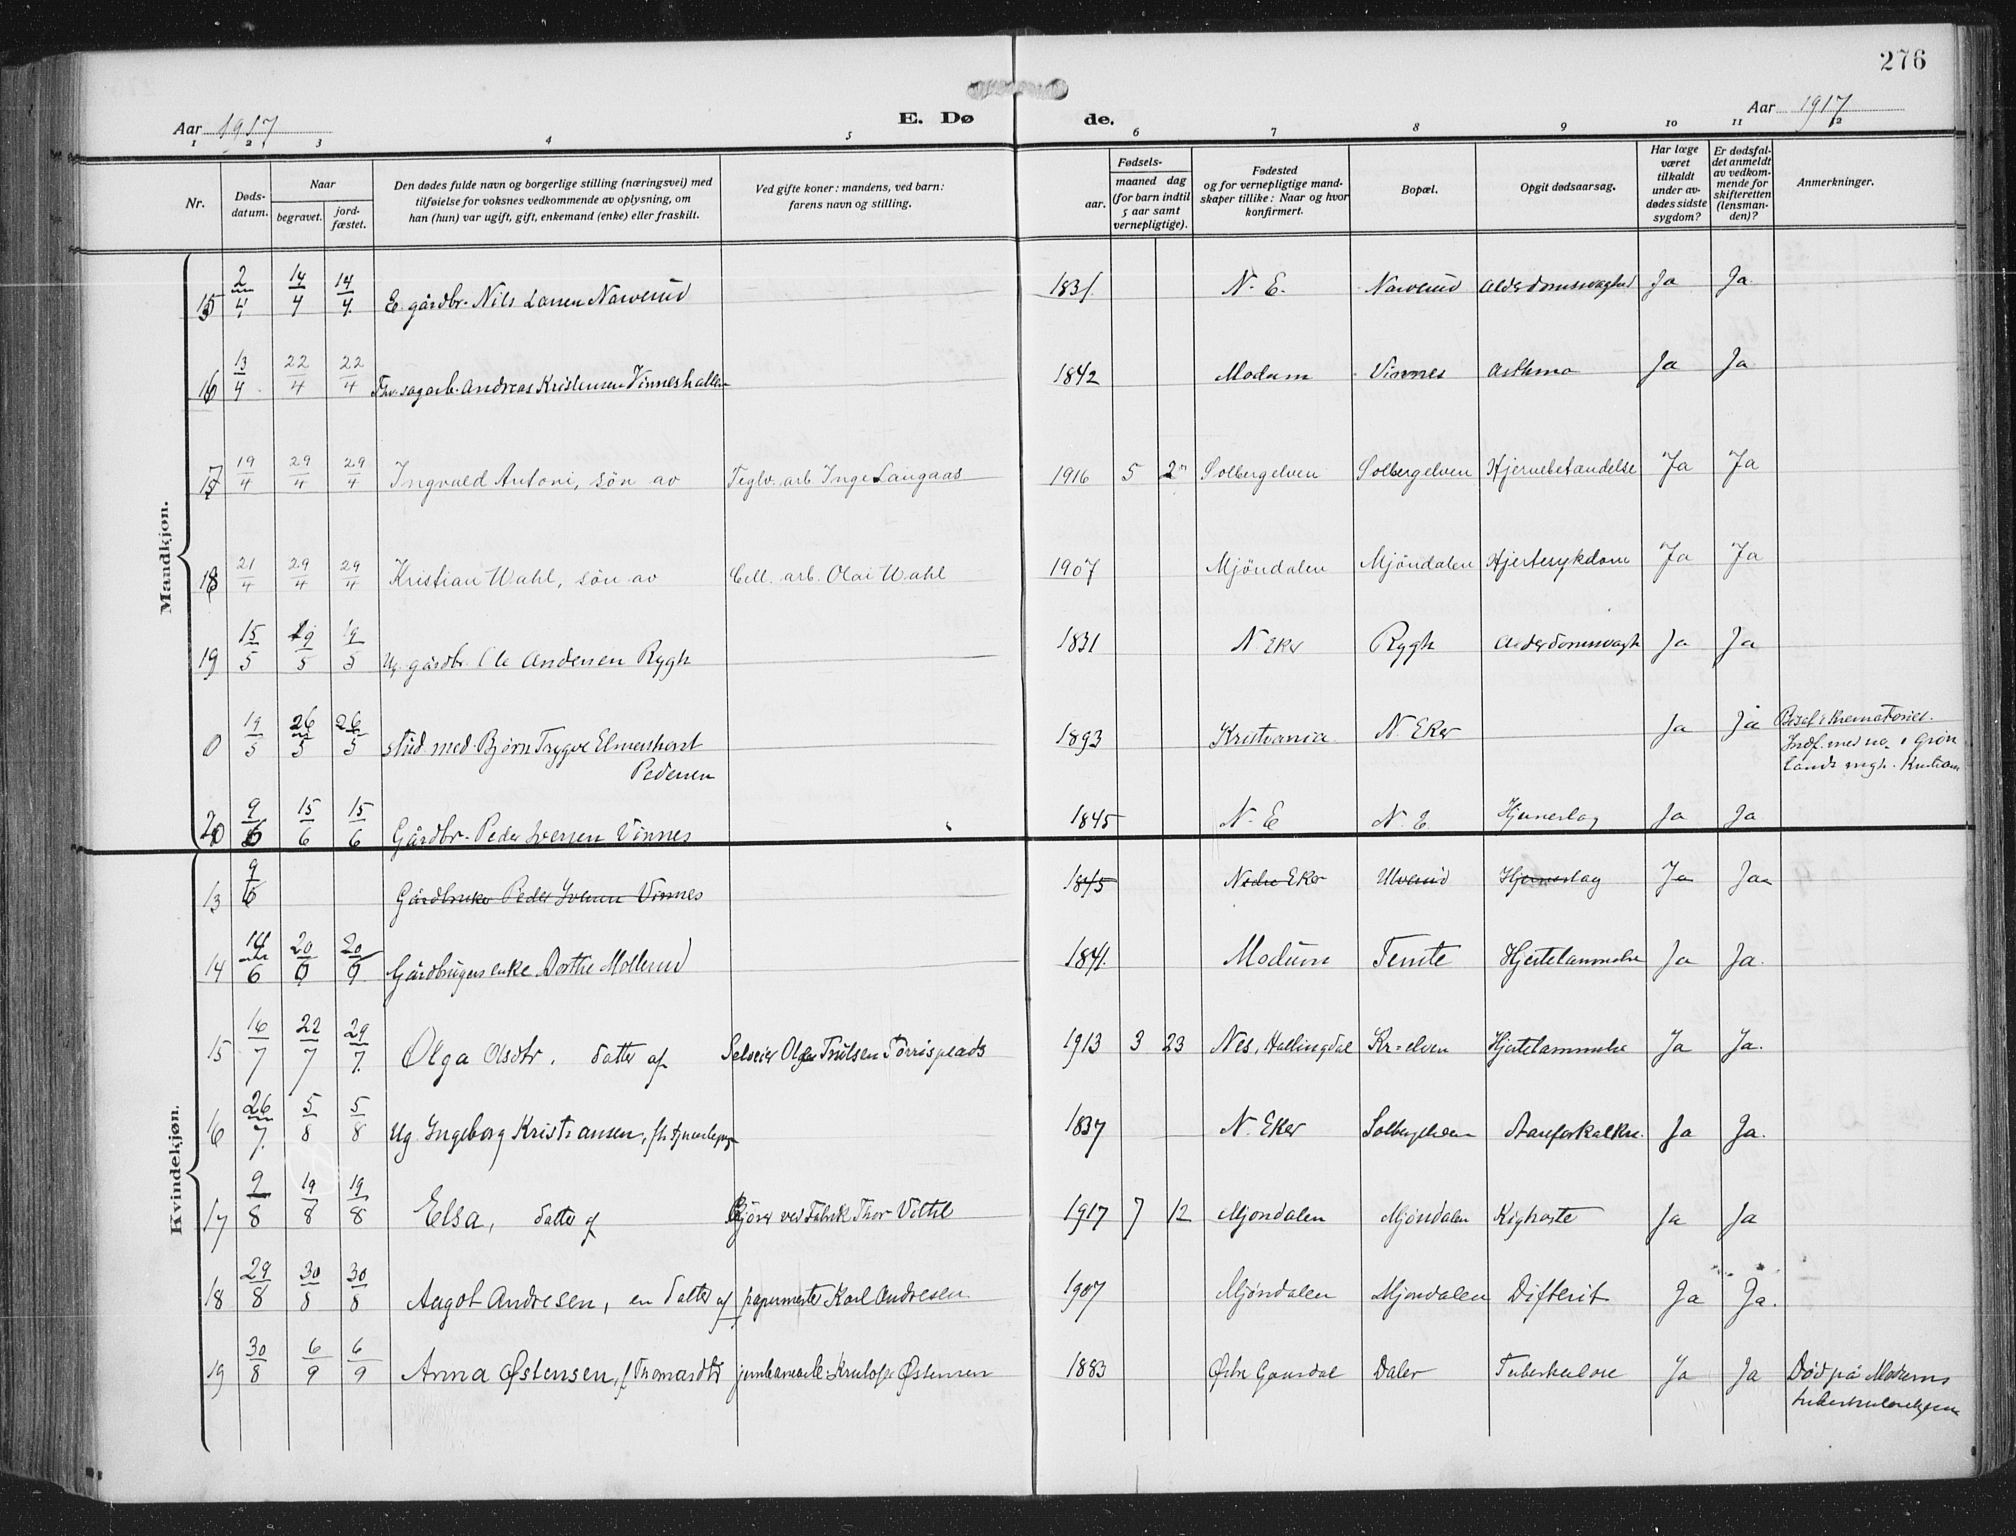 276
Aar 1917 E. Dø de. Aar 1917
1 2 3 4 5 6 7 8 9 10 11 12
Nr. Døds-datum. Naar begravet. jord-fæstet. Den dødes fulde navn og borgerlige stilling (næringsvei) med tilføielse for voksnes vedkommende av oplysning, om han (hun) var ugift, gift, enkemand (enke) eller fraskilt. Ved gifte koner: mandens, ved barn: farens navn og stilling. Fødsels- aar. maaned dag (for barn indtil 5 aar samt vernepligtige). Fødested og for vernepligtige mand-skaper tillike: Naar og hvor konfirmert. Bopæl. Opgit dødsaarsag. Har læge været tilkaldt under av-dødes sidste sygdom? Er dødsfal-det anmeldt av vedkom-mende for skifteretten (lensman-den)? Anmerkninger.
Mandkjøn.
15 2/4 14/4 14/4 E. gårdbr. Nils Larsen Narverud 1831. N. E. Narverud Alderdomssvaghed Ja Ja.
16 13/4 22/4 22/4 sagarb. Andreas Kristensen Vinneshallen 1842 Modum Vinnes Asthma Ja Ja.
17 19/4 29/4 29/4 Ingvald Antoni, søn av Teglv. arb. Inge Langaas 1916 5 2 Solbergelven Solbergelven Hjernebetændelse Ja Ja
18 21/4 29/4 29/4 Kristian Wahl, søn av Cell. arb. Olai Wahl 1907 Mjöndalen Mjöndalen Hjertesykdom Ja Ja
19 15/5 19/5 19/5 Ug. gårdbr. Ole Andersen Rygh 1831 N. Eker Rygh Alderdomssvagh Ja Ja
0 19/5 26/5 26/5 stud. med. Bjørn Trygve Elmenhorst Pedersen 1893 Kristiania N. Eker Ja Ja Bisat i Krematoriet. Indf. med no. i Grønlands mgh. Kristiania
20 9/6 15/6 15/6 Gårdbr. Peder Iversen Vinnes 1845 N. E N. E. Hjerneslag Ja Ja
Kvindekjøn.
13 9/6 Gårdbruker Peder Iversen Vinnes 1845 Nedre Eker Ulverud Hjerneslag Ja Jaa
14 14/6 20/6 20/6 Gårdbrugers enke Dorthe Mollerud 1841. Modum Temte Hjertelammelse Ja Ja.
15 16/7 22/7 29/7. Olga Olsdtr. datter af Selveier Olaf Trulsen Torrisplads 1913 3 23 Nes, Hallingdal Kr-elven Hjertelammelse Ja Ja.
16 26/7. 5/8 5/8 Ug Ingeborg Kristiansen, 1837 N. Eker Solbergelven Aareforkalkn. Ja Ja.
17 9/8 19/8 19/8 Elsa, datter af ved Fabrik Thor Vittil 1917 7 12 Mjondalen Mjöndalen Kighoste Ja Ja
18 29/8 30/8 30/8 Aagot Andresen, en datter af papermester Karl Andresen 1907 Mjöndalen Mjondalen Difterit Ja Ja.
19 30/8 6/9 6/9 Anna Østensen, f. Thomasdtr. Østensen 1883 Østre Gausdal Daler Tuberkulose Ja Ja Død på Modums tuberkulosehjem